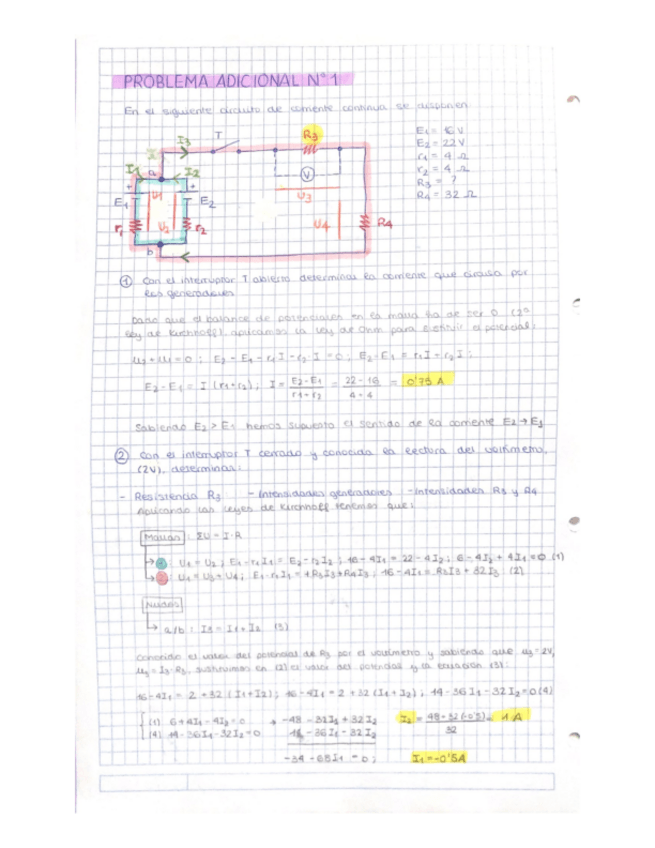 PROBLEMA ADICIONAL Nº 1
En el siguiente circuito de corriente continua se disponen
E1 = 16 V
E2 = 22 V
r1 = 4 Ω
r2 = 4 Ω
R3 = ?
R4 = 32 Ω
T
R3
I3
I1
a
I2
V
U1
E1
E2
U3
U2
r1
r2
U4
R4
b
① Con el interruptor T abierto determinar la corriente que circula por
los generadores
Dado que el balance de potenciales en la malla ha de ser 0 (2ª
ley de Kirchhoff), aplicamos la ley de Ohm para sustituir el potencial:
E2 - E1 - r1 I - r2 I = 0 ; E2 - E1 = r1 I + r2 I ;
E2 - E1 = I (r1 + r2) ; I = E2 - E1 / r1 + r2 = 22 - 16 / 4 + 4 = 0'75 A
Sabiendo E2 > E1 hemos supuesto el sentido de la corriente E2 →
② Con el interruptor T cerrado y conocida la lectura del voltímetro,
(2V), determinar:
- Resistencia R3 - Intensidades generadores - Intensidades R3 y R4
Aplicando las leyes de Kirchhoff tenemos que:
Mallas : ΣU = I·R
→ 1: U1 = U2 ; E1 - r1 I1 = E2 - r2 I2 ; 16 - 4I1 = 22 - 4I2 ; 6 - 4I2 + 4I1 = 0 (1)
→ 2: U1 = U3 + U4 ; E1 - r1 I1 = + R3 I3 + R4 I3 ; 16 - 4I1 = R3 I3 + 32 I3 (2)
Nudos
→ a/b : I3 = I1 + I2 (3)
Conocido el valor del potencial de R3 por el voltímetro y sabiendo que U3 = 2V,
U3 = I3·R3, sustituimos en (2) el valor del potencial y la ecuación (3):
16 - 4I1 = 2 + 32 (I1 + I2) ; 16 - 4I1 = 2 + 32 (I1 + I2) ; 14 - 36 I1 - 32 I2 = 0 (4)
(1) 6 + 4I1 - 4I2 = 0 → -48 - 32 I1 + 32 I2
(4) 14 - 36 I1 - 32 I2 = 0 14 - 36 I1 - 32 I2
I2 = 48 + 32 (-0'5) / 32 = 1 A
-34 - 68 I1 = 0 ; I1 = -0'5 A